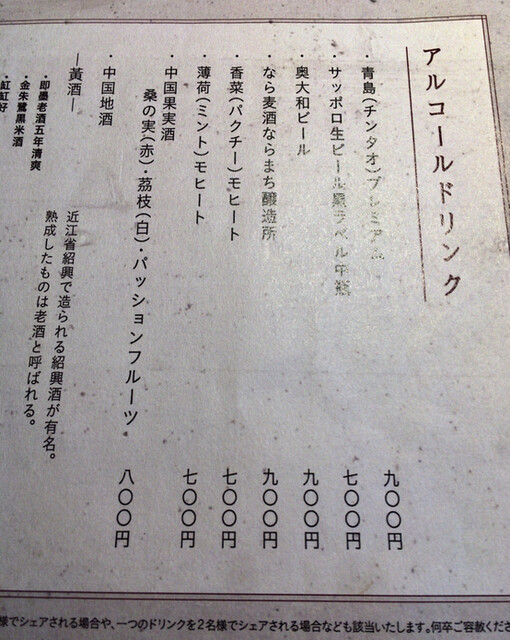 アルコールドリンク
・青島(チンタオ)プレミアム 九〇〇円
・サッポロ生ビール黒ラベル中瓶 七〇〇円
・奥大和ビール 九〇〇円
・なら麦酒ならまち醸造所 九〇〇円
・香菜(パクチー)モヒート 七〇〇円
・薄荷(ミント)モヒート 七〇〇円
・中国果実酒
桑の実(赤)・茘枝(白)・パッションフルーツ 八〇〇円
・中国地酒
―黃酒―
近江省紹興で造られる紹興酒が有名。
熟成したものは老酒と呼ばれる。
・即墨老酒五年清爽
・金朱鷺黒米酒
様でシェアされる場合や、一つのドリンクを2名様でシェアされる場合なども該当いたします。何卒ご容赦くださ